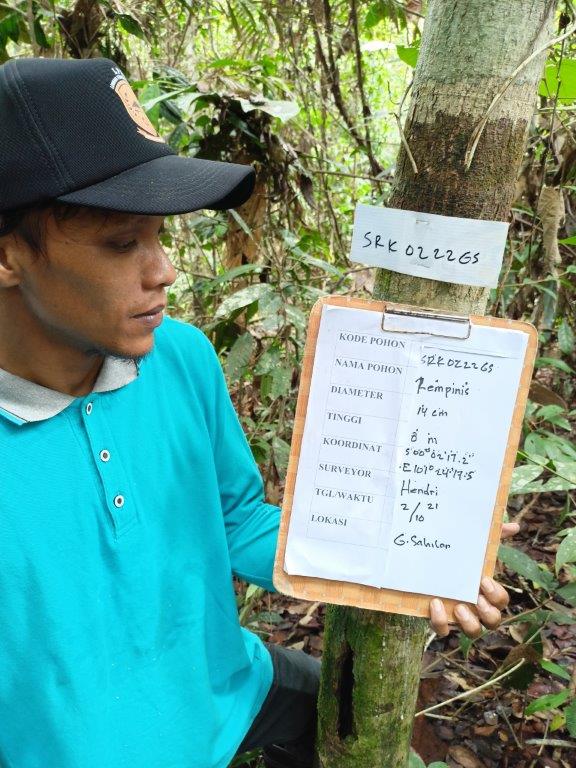 SRK0222GS
KODE POHON SRK0222GS
NAMA POHON Kempinis
DIAMETER 14 cm
TINGGI 8 m
KOORDINAT S 00° 02' 17.2"
E 101° 24' 17.5
SURVEYOR Hendri
TGL/WAKTU 2/10 21
LOKASI G. Sahilan